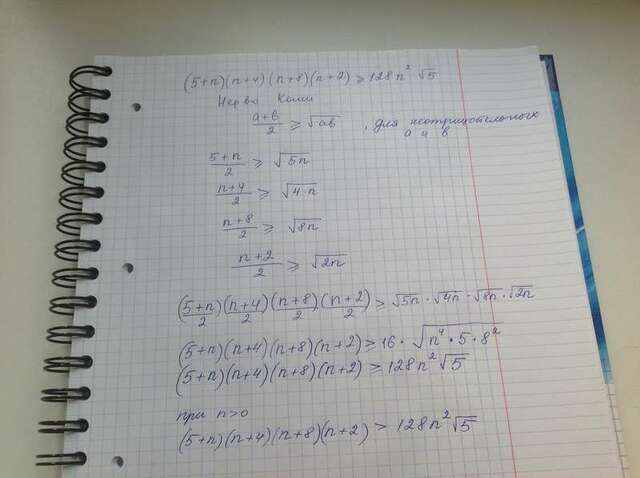 (5+n)(n+4)(n+8)(n+2) ≥ 128n² √5
Нер-во Коши
(a+b)/2 ≥ √ab , для неотрицательных
a и b
(5+n)/2 ≥ √5n
(n+4)/2 ≥ √4·n
(n+8)/2 ≥ √8n
(n+2)/2 ≥ √2n
((5+n)/2)((n+4)/2)((n+8)/2)((n+2)/2) ≥ √5n · √4n · √8n · √2n
(5+n)(n+4)(n+8)(n+2) ≥ 16 · √n⁴ · 5 · 8²
(5+n)(n+4)(n+8)(n+2) ≥ 128n² √5
при n>0
(5+n)(n+4)(n+8)(n+2) > 128n² √5